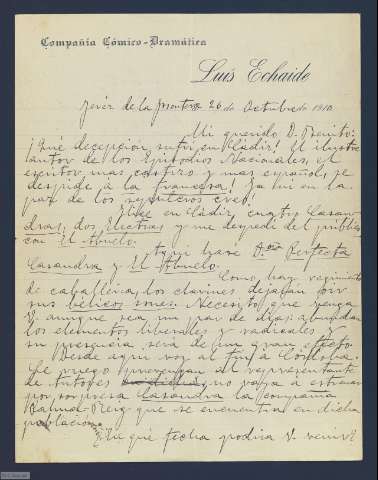 Compañía Cómico-Dramática
Luis Echaide
Jerez de la frontera 26 de Octubre de 1910
Mi querido D. Benito:
¡Qué decepción sufrí en Cádiz! El ilustre
autor de los Episodios Nacionales, el
escritor mas castizo y mas español, se
despide á la francesa! Ya ni en la
paz de los sepulcros creo!
Hice en Cádiz, cuatro Casan-
dras, dos Electras y me despedí del público
con El Abuelo.
Aquí haré Dña Perfecta
Casandra y El Abuelo.
Como hay regimiento
de caballería, los clarines dejarán oir
sus bélicos sones. Necesito que venga
V. aunque sea un par de días; abundan
los elementos liberales y radicales y
su presencia será de un gran efecto
Desde aquí voy al a Córdoba.
Le ruego prevengan al representante
de Autores no vaya á estrenar
por sorpresa Casandra la compañía
que se encuentra en dicha
poblacion
qué fecha podría V. venir?